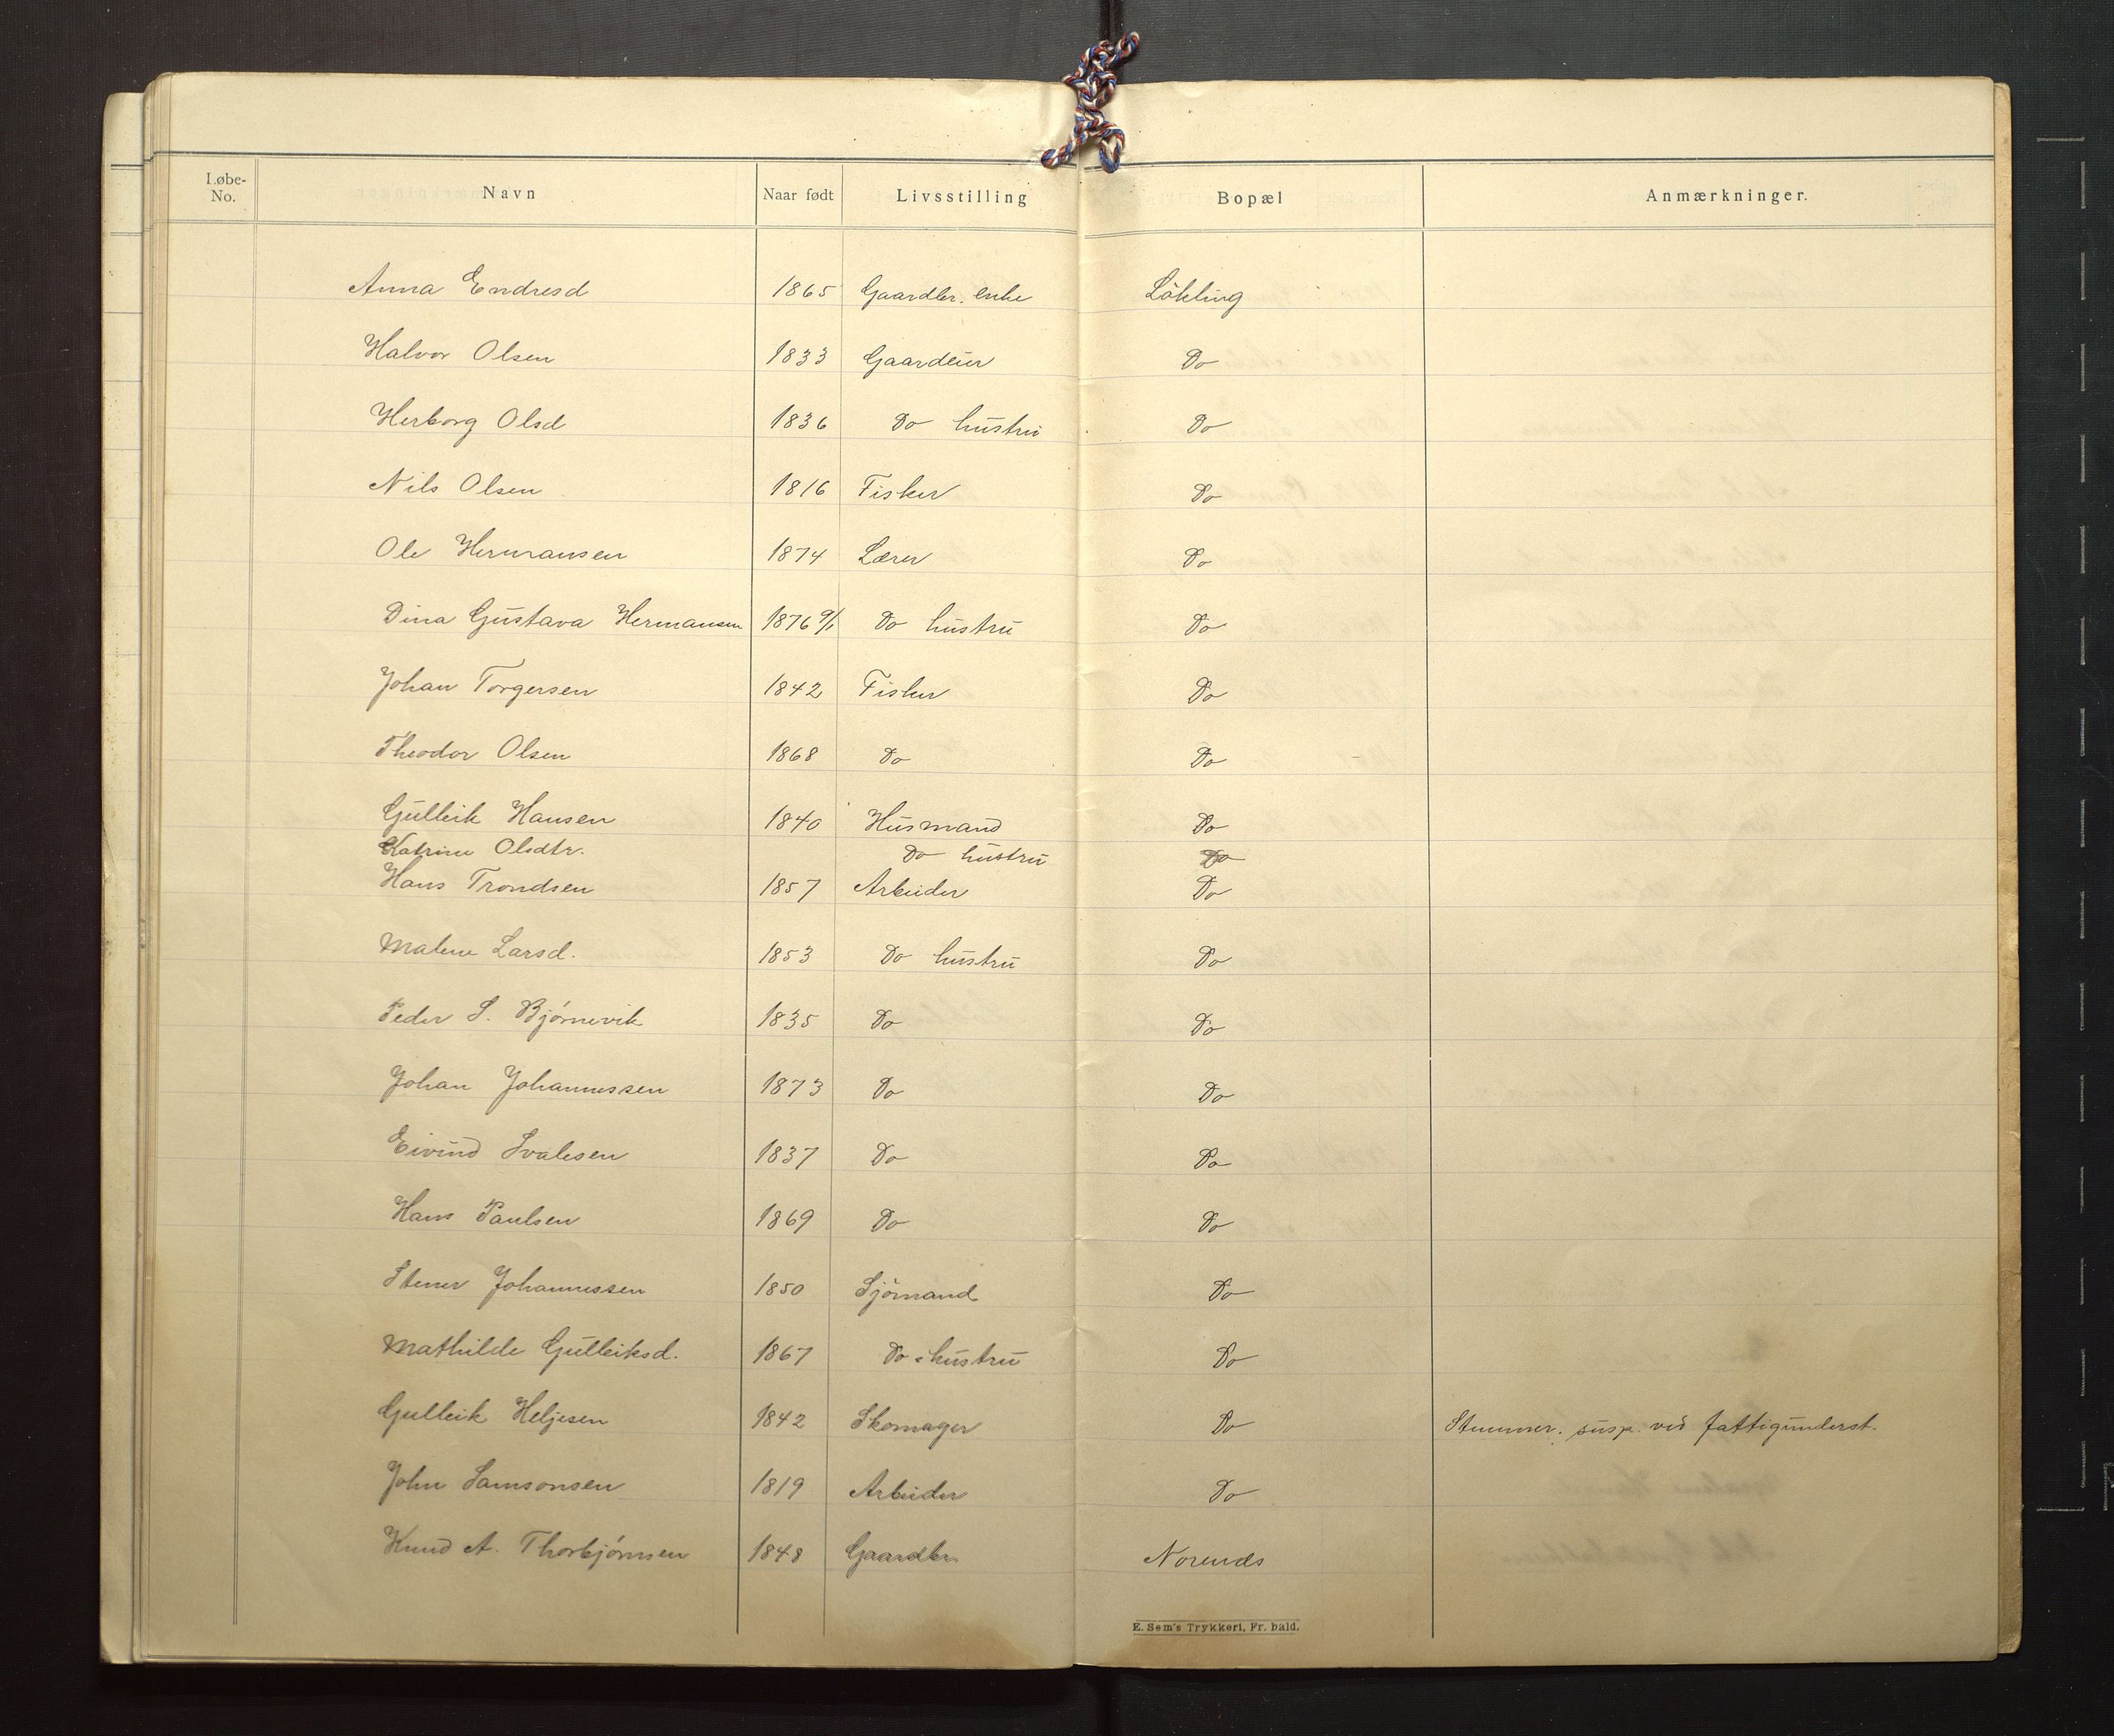 Løbe-No. Navn Naar født Livsstilling Bopæl Anmærkninger.
Anna Endresd 1865 Gaardbr. enke Lökling
Halvor Olsen 1833 Gaardeier Do
Herborg Olsd 1836 Do hustru Do
Nils Olsen 1816 Fisker Do
Ole Hermansen 1874 Lærer Do
Dina Gustava Hermansen 1876 9/1 Do hustru Do
Johan Torgersen 1842 Fisker Do
Theodor Olsen 1868 Do Do
Gulleik Hansen 1840 Husmand Do
Katrine Olsdtr. Do hustru Do
Hans Trondsen 1857 Arbeider Do
Malene Larsd. 1853 Do hustru Do
Peder S. Bjørnevik 1835 Do Do
Johan Johannessen 1873 Do Do
Eivind Svalesen 1837 Do Do
Hans Paulsen 1869 Do Do
Stener Johannessen 1850 Sjömand Do
Mathilde Gulleiksd. 1867 Do hustru Do
Gulleik Heljesen 1842 Skomager Do Stemmer. susp. ved fattigunderst.
John Samsonsen 1819 Arbeider Do
Knud A. Thorbjørnsen 1848 Gaardbr. Norends
E. Sem's Trykkeri, Fr. hald.